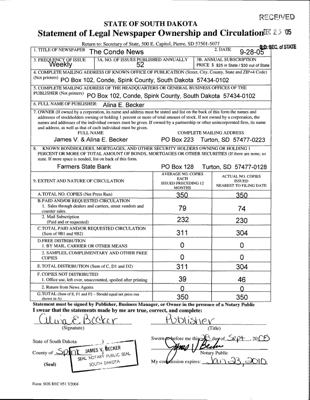 RECEIVED
STATE OF SOUTH DAKOTA
Statement of Legal Newspaper Ownership and Circulation
Return to: Secretary of State, 500 E. Capitol, Pierre, SD 57501-5077
S.D. SEC. of STATE
1. TITLE OF NEWSPAPER The Conde News
2. DATE 9-28-05
3. FREQUENCY OF ISSUE Weekly
3A. NO. OF ISSUES PUBLISHED ANNUALLY 52
3B. ANNUAL SUBSCRIPTION PRICE $
4. COMPLETE MAILING ADDRESS OF KNOWN OFFICE OF PUBLICATION (Street, City, County, State and ZIP+4 Code)
(Not printers) PO Box 102, Conde, Spink County, South Dakota 57434-0102
5. COMPLETE MAILING ADDRESS OF THE HEADQUARTERS OR GENERAL BUSINESS OFFICES OF THE
PUBLISHER (Not printers) PO Box 102, Conde, Spink County, South Dakota 57434-0102
6. FULL NAME OF PUBLISHER Alina E. Becker
7. OWNER (If owned by a corporation, its name and address must be stated and list on the back of this form the names and
addresses of stockholders owning or holding 1 percent or more of total amount of stock. If not owned by a corporation, the
names and addresses of the individual owners must be given. If owned by a partnership or other unincorporated firm, its name
and address, as well as that of each individual must be given.
FULL NAME COMPLETE MAILING ADDRESS
James V. & Alina E. Becker PO Box 223 Turton, SD 57477-0223
8. KNOWN BONDHOLDERS, MORTGAGES, AND OTHER SECURITY HOLDERS OWNING OR HOLDING 1
PERCENT OR MORE OF TOTAL AMOUNT OF BONDS, MORTGAGES OR OTHER SECURITIES (If there are none, so
state. If more space is needed, list on back of this form.
Farmers State Bank PO Box 128 Turton, SD 57477-0128
9. EXTENT AND NATURE OF CIRCULATION
AVERAGE NO. COPIES EACH ISSUED PRECEDING 12 MONTHS
ACTUAL NO. COPIES ISSUED NEAREST TO FILING DATE
A. TOTAL NO. COPIES (Net Press Run) 350 350
B. PAID AND/OR REQUESTED CIRCULATION
1. Sales through dealers and carriers, street vendors and
counter sales. 79 74
2. Mail Subscription
(Paid and or requested) 232 230
C. TOTAL PAID AND/OR REQUESTED CIRCULATION
(Sum of 9B1 and 9B2) 311 304
D. FREE DISTRIBUTION
1. BY MAIL, CARRIER OR OTHER MEANS 0 0
2. SAMPLES, COMPLIMENTARY AND OTHER FREE
COPIES 0 0
E. TOTAL DISTRIBUTION (Sum of C, D1 and D2) 311 304
F. COPIES NOT DISTRIBUTED
1. Office use, left over, unaccounted, spoiled after printing 39 46
2. Return from News Agents 0 0
G. TOTAL (Sum of E, F1 and F2 - Should equal net press run
shown in A) 350 350
Statement must be signed by Publisher, Business Manager, or Owner in the presence of a Notary Public
I swear that the statements made by me are true, correct, and complete:
Alina E. Becker Publisher
(Signature) (Title)
State of South Dakota
County of Spink
(Seal)
JAMES V. BECKER
NOTARY PUBLIC SEAL
SOUTH DAKOTA
Sworn before me this day of Sept 2005
James V Becker
Notary Public
My commission expires: Jan. 23, 2010